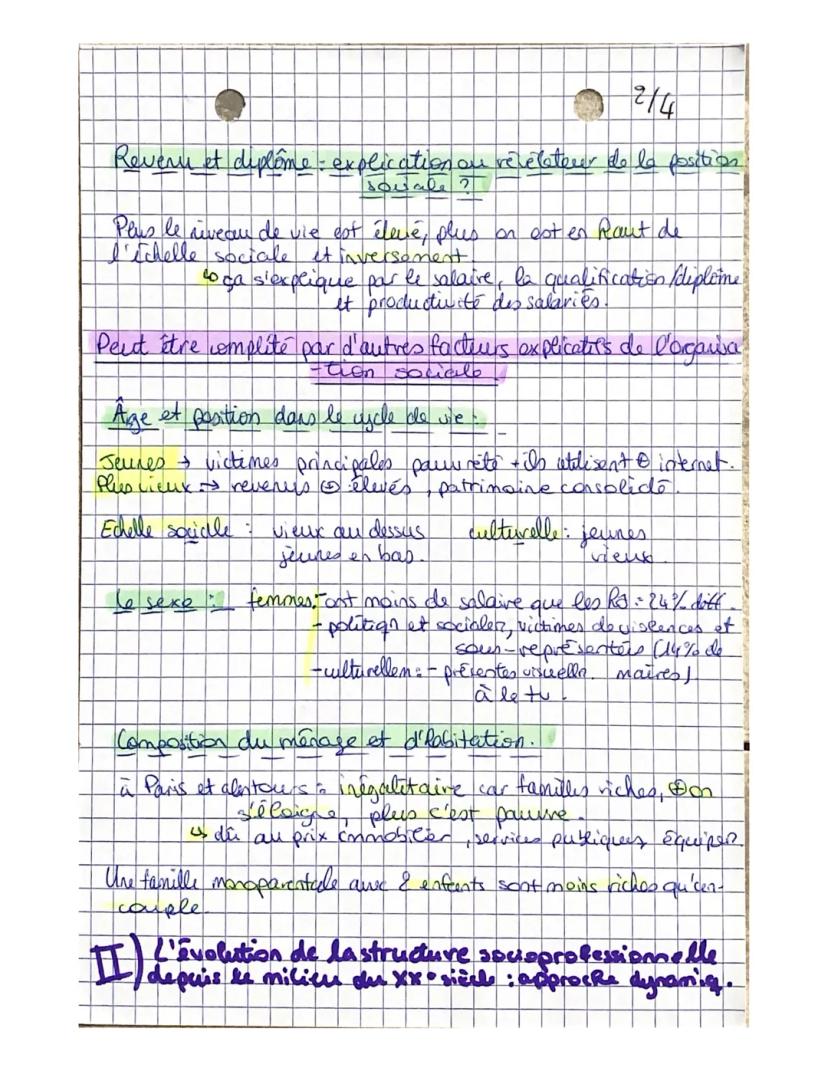 2/4
Revenu et diplôme : explication ou révélateur de la position
sociale ?
Plus le niveau de vie est élevé, plus on est en haut de
l'échelle sociale et inversement.
↳ ça s'explique par le salaire, la qualification/diplôme
et productivité des salariés.
Peut être complité par d'autres facteurs explicatifs de l'organisa
-tion sociale.
Âge et position dans le cycle de vie :
Jeunes → victimes principales pauvreté + ils utilisent ⊕ internet.
Plus vieux → revenus ⊕ élevés, patrimoine consolidé.
Echelle sociale : vieux au dessus culturelle : jeunes
jeunes en bas. vieux.
Le sexe : femmes : - ont moins de salaire que les h : 24% diff.
- politiqn et socialem, victimes de violences et
sous-représentées (14% de
- culturellem : - présentes visuellm. maires)
à la tv.
Composition du ménage et d'habitation.
à Paris et alentours : inégalitaire car familles riches, ⊕ on
s'éloigne, plus c'est pauvre.
↳ dû au prix immobilier, services publiques, équipem.
Une famille monoparentale avec 2 enfants sont moins riches qu'en
couple.
II) L'évolution de la structure socioprofessionnelle
depuis le milieu du XXe siècle : approche dynamiq.